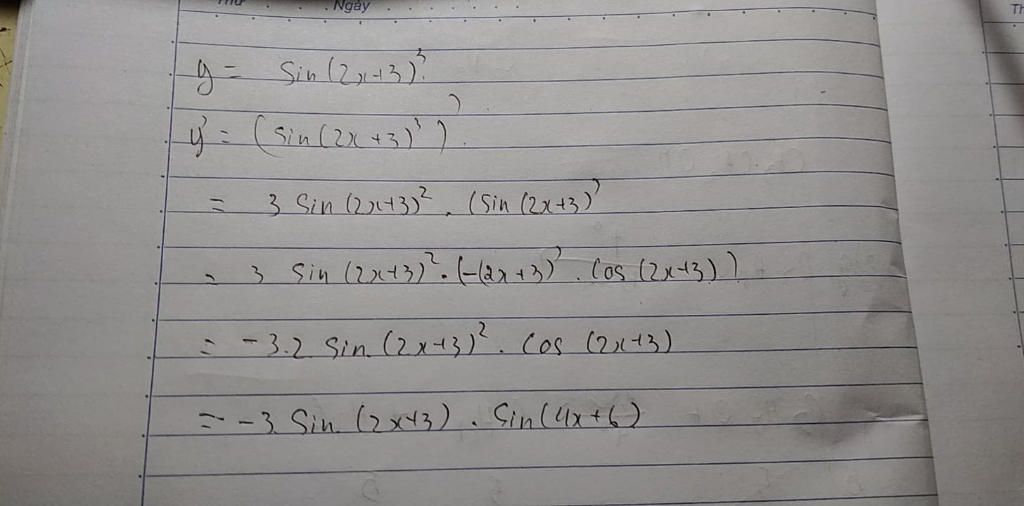 Thứ Ngày
y = Sin(2x+3)³
y' = (Sin(2x+3)³)'
= 3 Sin (2x+3)² . (Sin (2x+3)'
= 3 Sin (2x+3)² . (-(2x+3)' . Cos (2x+3))
= -3.2 Sin (2x+3)² . Cos (2x+3)
= -3 Sin (2x+3) . Sin(4x+6)